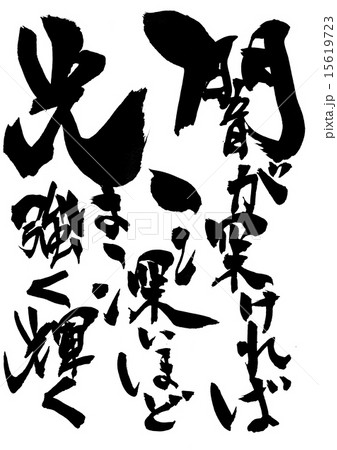 闇が深ければ
深いほど
光は
強く輝く
PIXTA
pixta.jp - 15619723